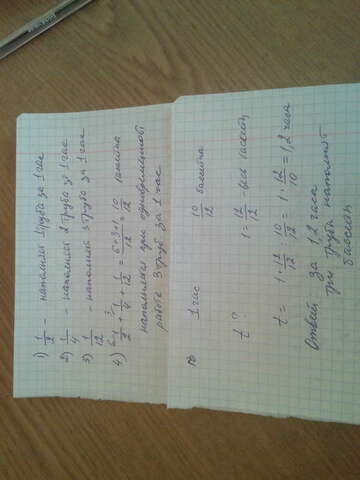 1) 1/2 - наполнял 1 труба за 1 час
2) 1/4 - наполнял 2 труба за 1 час
3) 1/12 - наполнял 3 труба за 1 час
4) 1/2 + 1/4 + 1/12 = 6+3+1/12 = 10/12 бассейна
наполнялся при одновременной
работе 3 труб за 1 час.
1 час 10/12 бассейна
t ? 1 = 12/12 - весь бассейн
t = 1 · 12/12 : 10/12 = 1 · 12/10 = 1,2 часа
Ответ за 1,2 часа
три трубы наполнят
бассейн